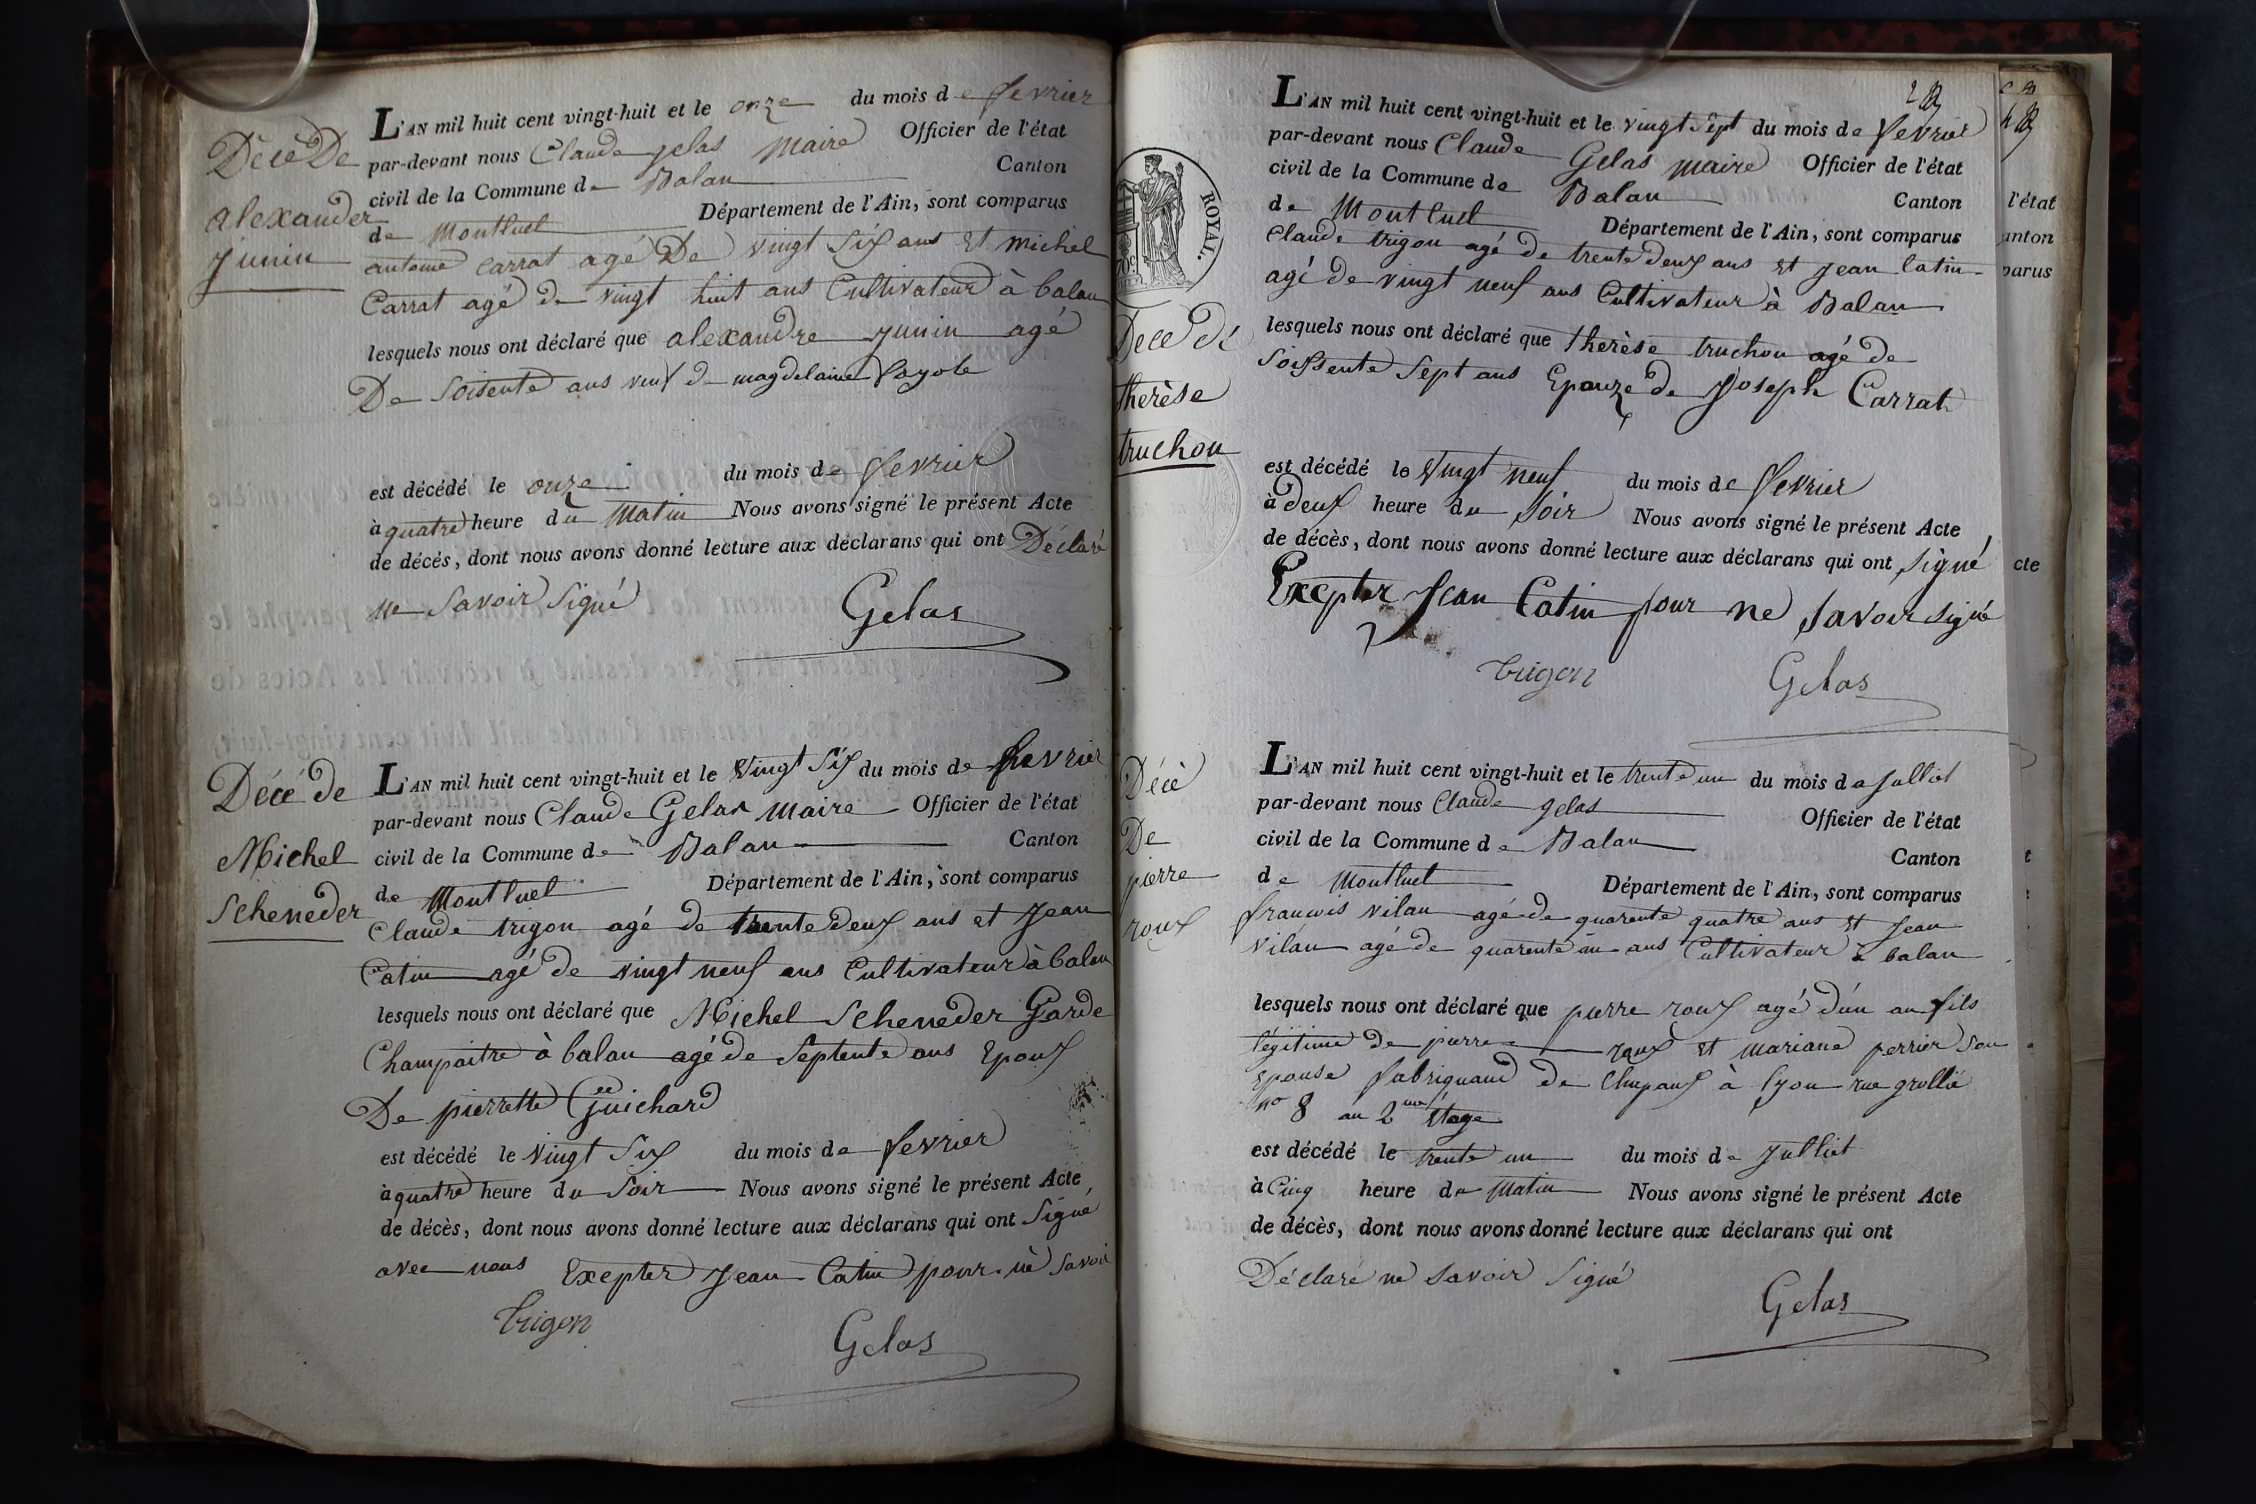 Décé De
alexander
junin
L'AN mil huit cent vingt-huit et le onze du mois de fevrier
par-devant nous Claude gelas Maire Officier de l'état
civil de la Commune de Balan Canton
de Montluel Département de l'Ain, sont comparus
antoine carrat agé De vingt Six ans et michel
Carrat agé de vingt huit ans Cultivateur à balan
lesquels nous ont déclaré que alexandre junin agé
De Soisente ans veuf de magdelaine
est décédé le onze du mois de fevrier
à quatre heure du Matin Nous avons signé le présent Acte
de décés, dont nous avons donné lecture aux déclarans qui ont Déclaré
ne Savoir Signé
Gelas
Décé de
Michel
Scheneder
L'AN mil huit cent vingt-huit et le Vingt Six du mois de fevrier
par-devant nous Claude Gelas Maire Officier de l'état
civil de la Commune de Balan Canton
de Montluel Département de l'Ain, sont comparus
Claude trigon agé de trente deux ans et Jean
Catin agé de vingt neuf ans Cultivateur à balan
lesquels nous ont déclaré que Michel Scheneder Garde
Champaitre à balan agé de Septente ans Epoux
De pierrette Guichard
est décédé le Vingt Six du mois de fevrier
à quatre heure du Soir Nous avons signé le présent Acte
de décès, dont nous avons donné lecture aux déclarans qui ont Signé
avec nous Exepter Jean Catin pour ne Savoir
trigon
Gelas
ROYAL.
Décé dé
therèse
truchon
L'AN mil huit cent vingt-huit et le vingt Sept du mois de fevrier
par-devant nous Claude Gelas maire Officier de l'état
civil de la Commune de Balan Canton
de Montluel Département de l'Ain, sont comparus
Claude trigon agé de trente deux ans et Jean Catin
agé de vingt neuf ans Cultivateur à Balan
lesquels nous ont déclaré que therèse truchon agé de
Soissente Sept ans Epouze de Joseph Carrat
est décédé le Vingt neuf du mois de fevrier
à deux heure du Soir Nous avons signé le présent Acte
de décès, dont nous avons donné lecture aux déclarans qui ont Signé
Exepter Jean Catin pour ne Savoir signé
trigon
Gelas
Décé
De
pierre
roux
L'AN mil huit cent vingt-huit et le trente un du mois de Julliet
par-devant nous Claude gelas Officier de l'état
civil de la Commune de Balan Canton
de Montluel Département de l'Ain, sont comparus
francois vilan agé de quarente quatre ans et Jean
vilan agé de quarente un ans Cultivateur à balan
lesquels nous ont déclaré que pierre roux agé d'un an fils
légitime de pierre roux et mariane perrier son
Epouse fabriquand de Chapaux à Lyon rue grollé
no 8 au 2me Etage
est décédé le trente un du mois de Julliet
à Cinq heure du Matin Nous avons signé le présent Acte
de décès, dont nous avons donné lecture aux déclarans qui ont
Déclaré ne Savoir Signé
Gelas
l'état
anton
parus
cte